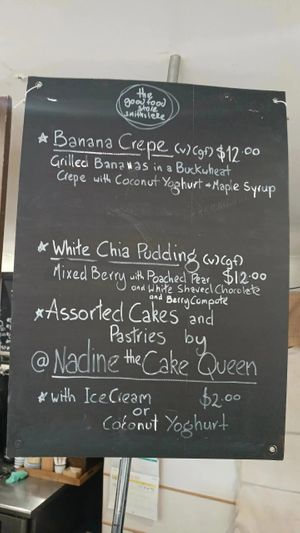 the
good food
store
smiths lake
* Banana Crepe (v)(gf) $12.00
Grilled Bananas in a Buckwheat
Crepe with Coconut Yoghurt + Maple Syrup
* White Chia Pudding (v)(gf)
Mixed Berry with Poached Pear $12.00
and White Shaved Chocolate
and Berry Compote
* Assorted Cakes and
Pastries by
@ Nadine the Cake Queen
* with Ice Cream $2.00
or
Coconut Yoghurt